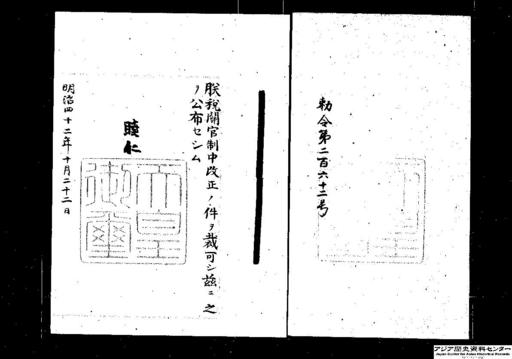 勅令第二百六十二号
朕税関官制中改正ノ件ヲ裁可シ茲ニ之
ノ公布セシム
睦仁
天皇
御璽
明治四十二年十月二十二日
アジア歴史資料センター
Japan Center for Asian Historical Records